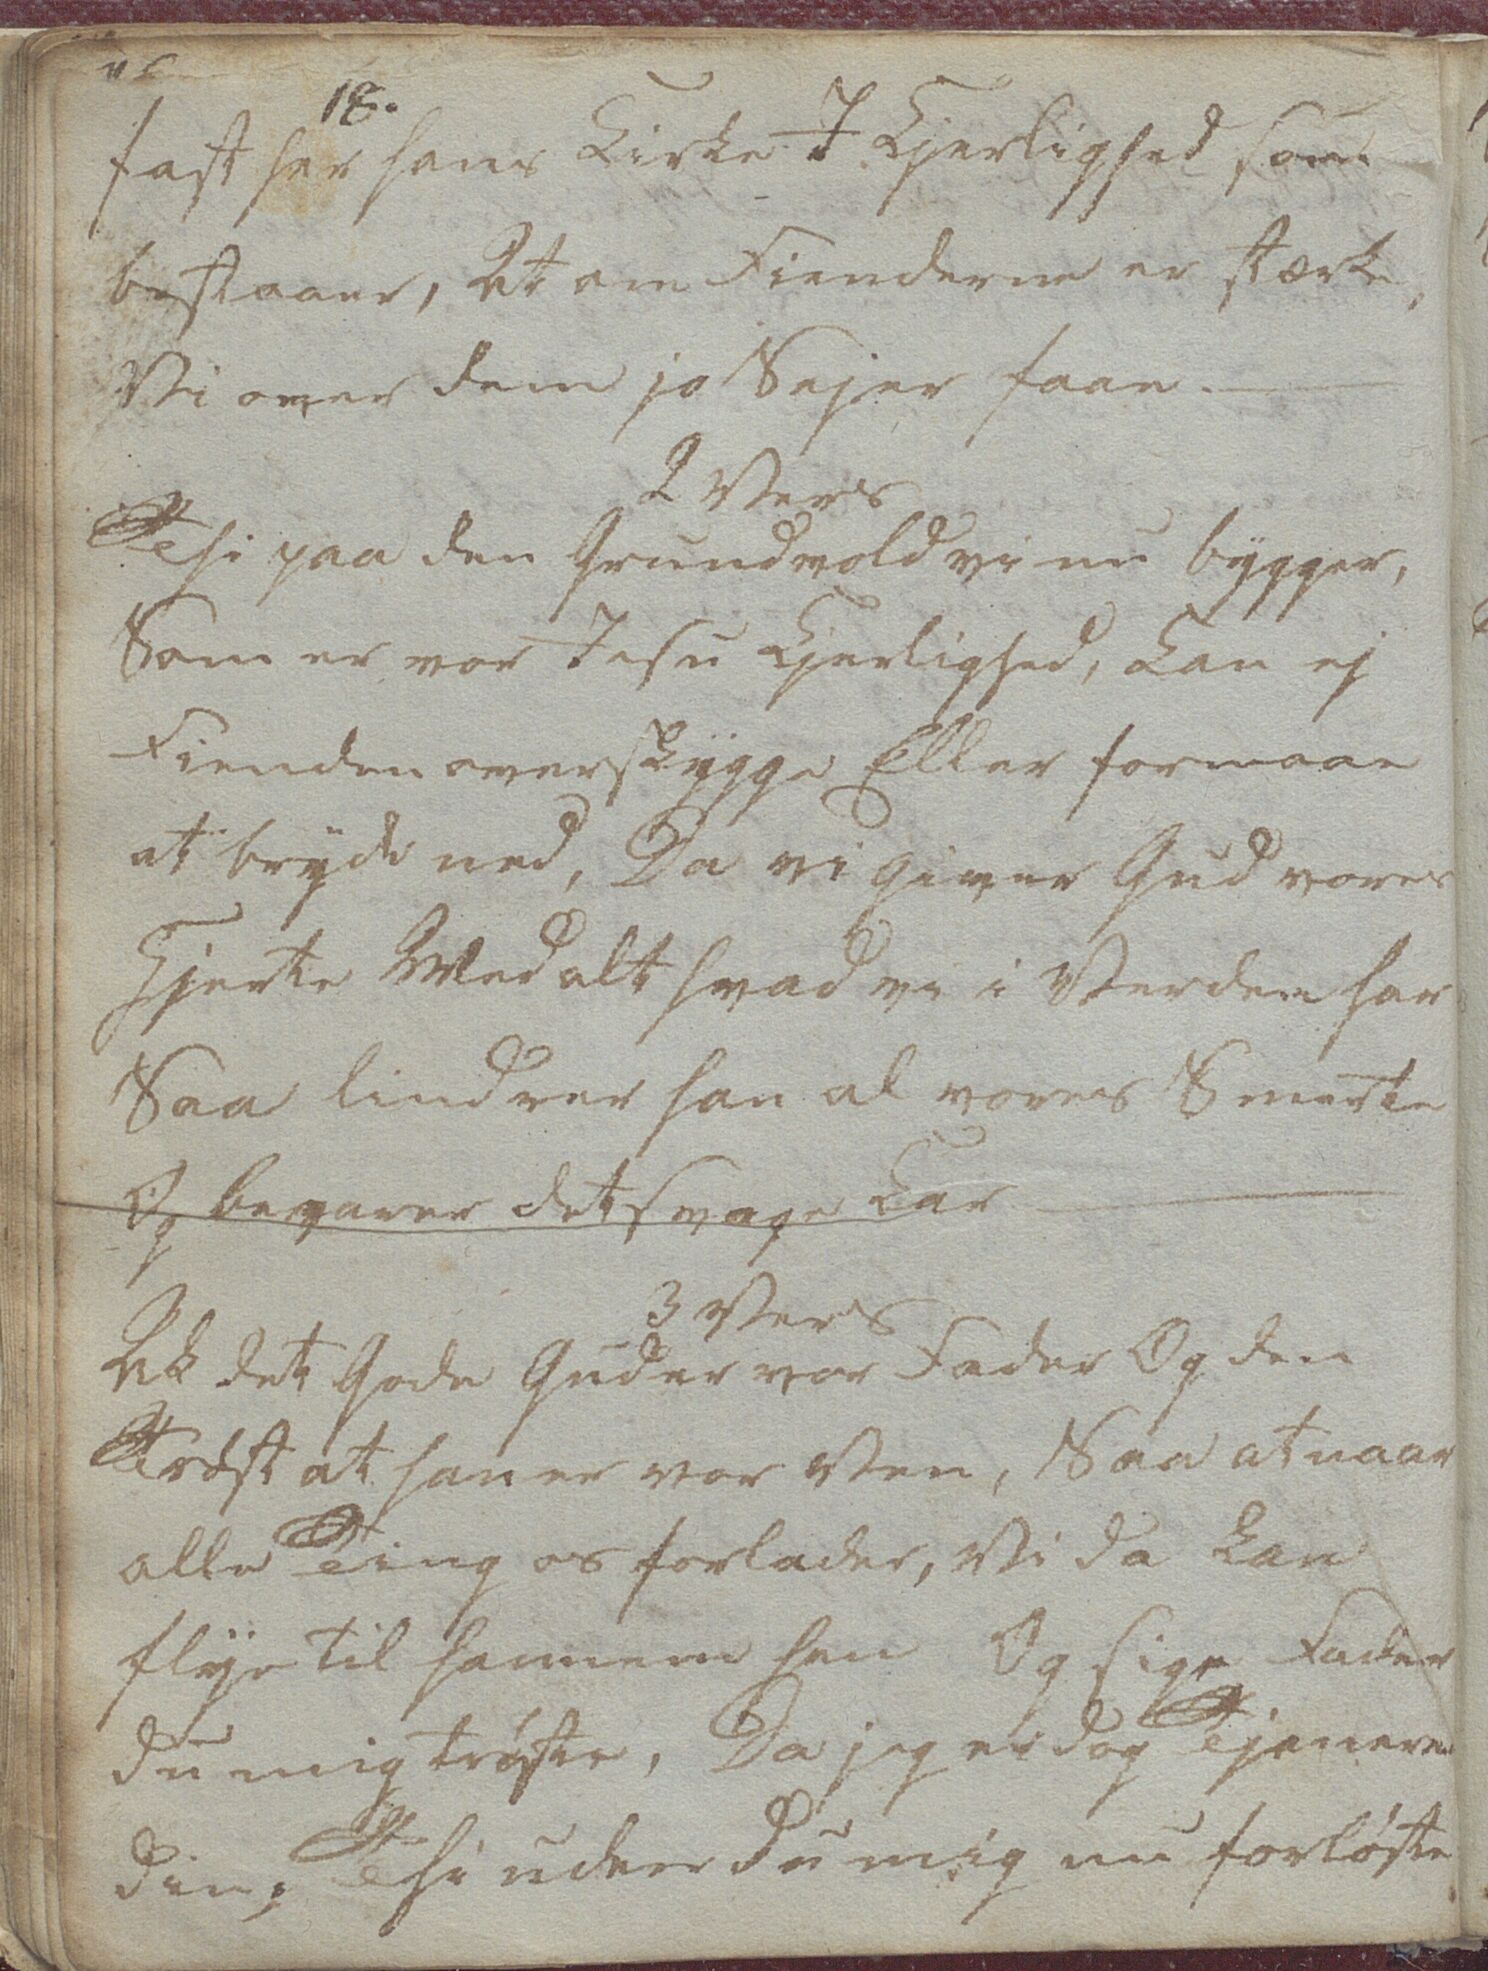 18.
fast her hans Kirke I Kjerlighed som
bestaaer, At om Fienderne er stærke,
Vi over dem jo Sejer faae.
2 Vers
Thi paa den Grundvold vi nu bygger,
Som er vor Jesu Kjerlighed, Kan ej
Fienden overskygge Eller formaae
at bryde ned, Da vi giver Gud vores
Hjerte Med alt hvad vi i Verden har
Saa lindrer han al vores Smerte
Og bevarer det svage Kar
3 Vers
Ak det Gode Gud er vor Fader Og den
Trøst at han er vor Ven, Saa at naar
alle Ting os forlader, Vi da kan
flye til hannem hen Og sige Fader
du mig trøste, Da jeg er dog Tjenere
din, Thi uden du mig nu forløste